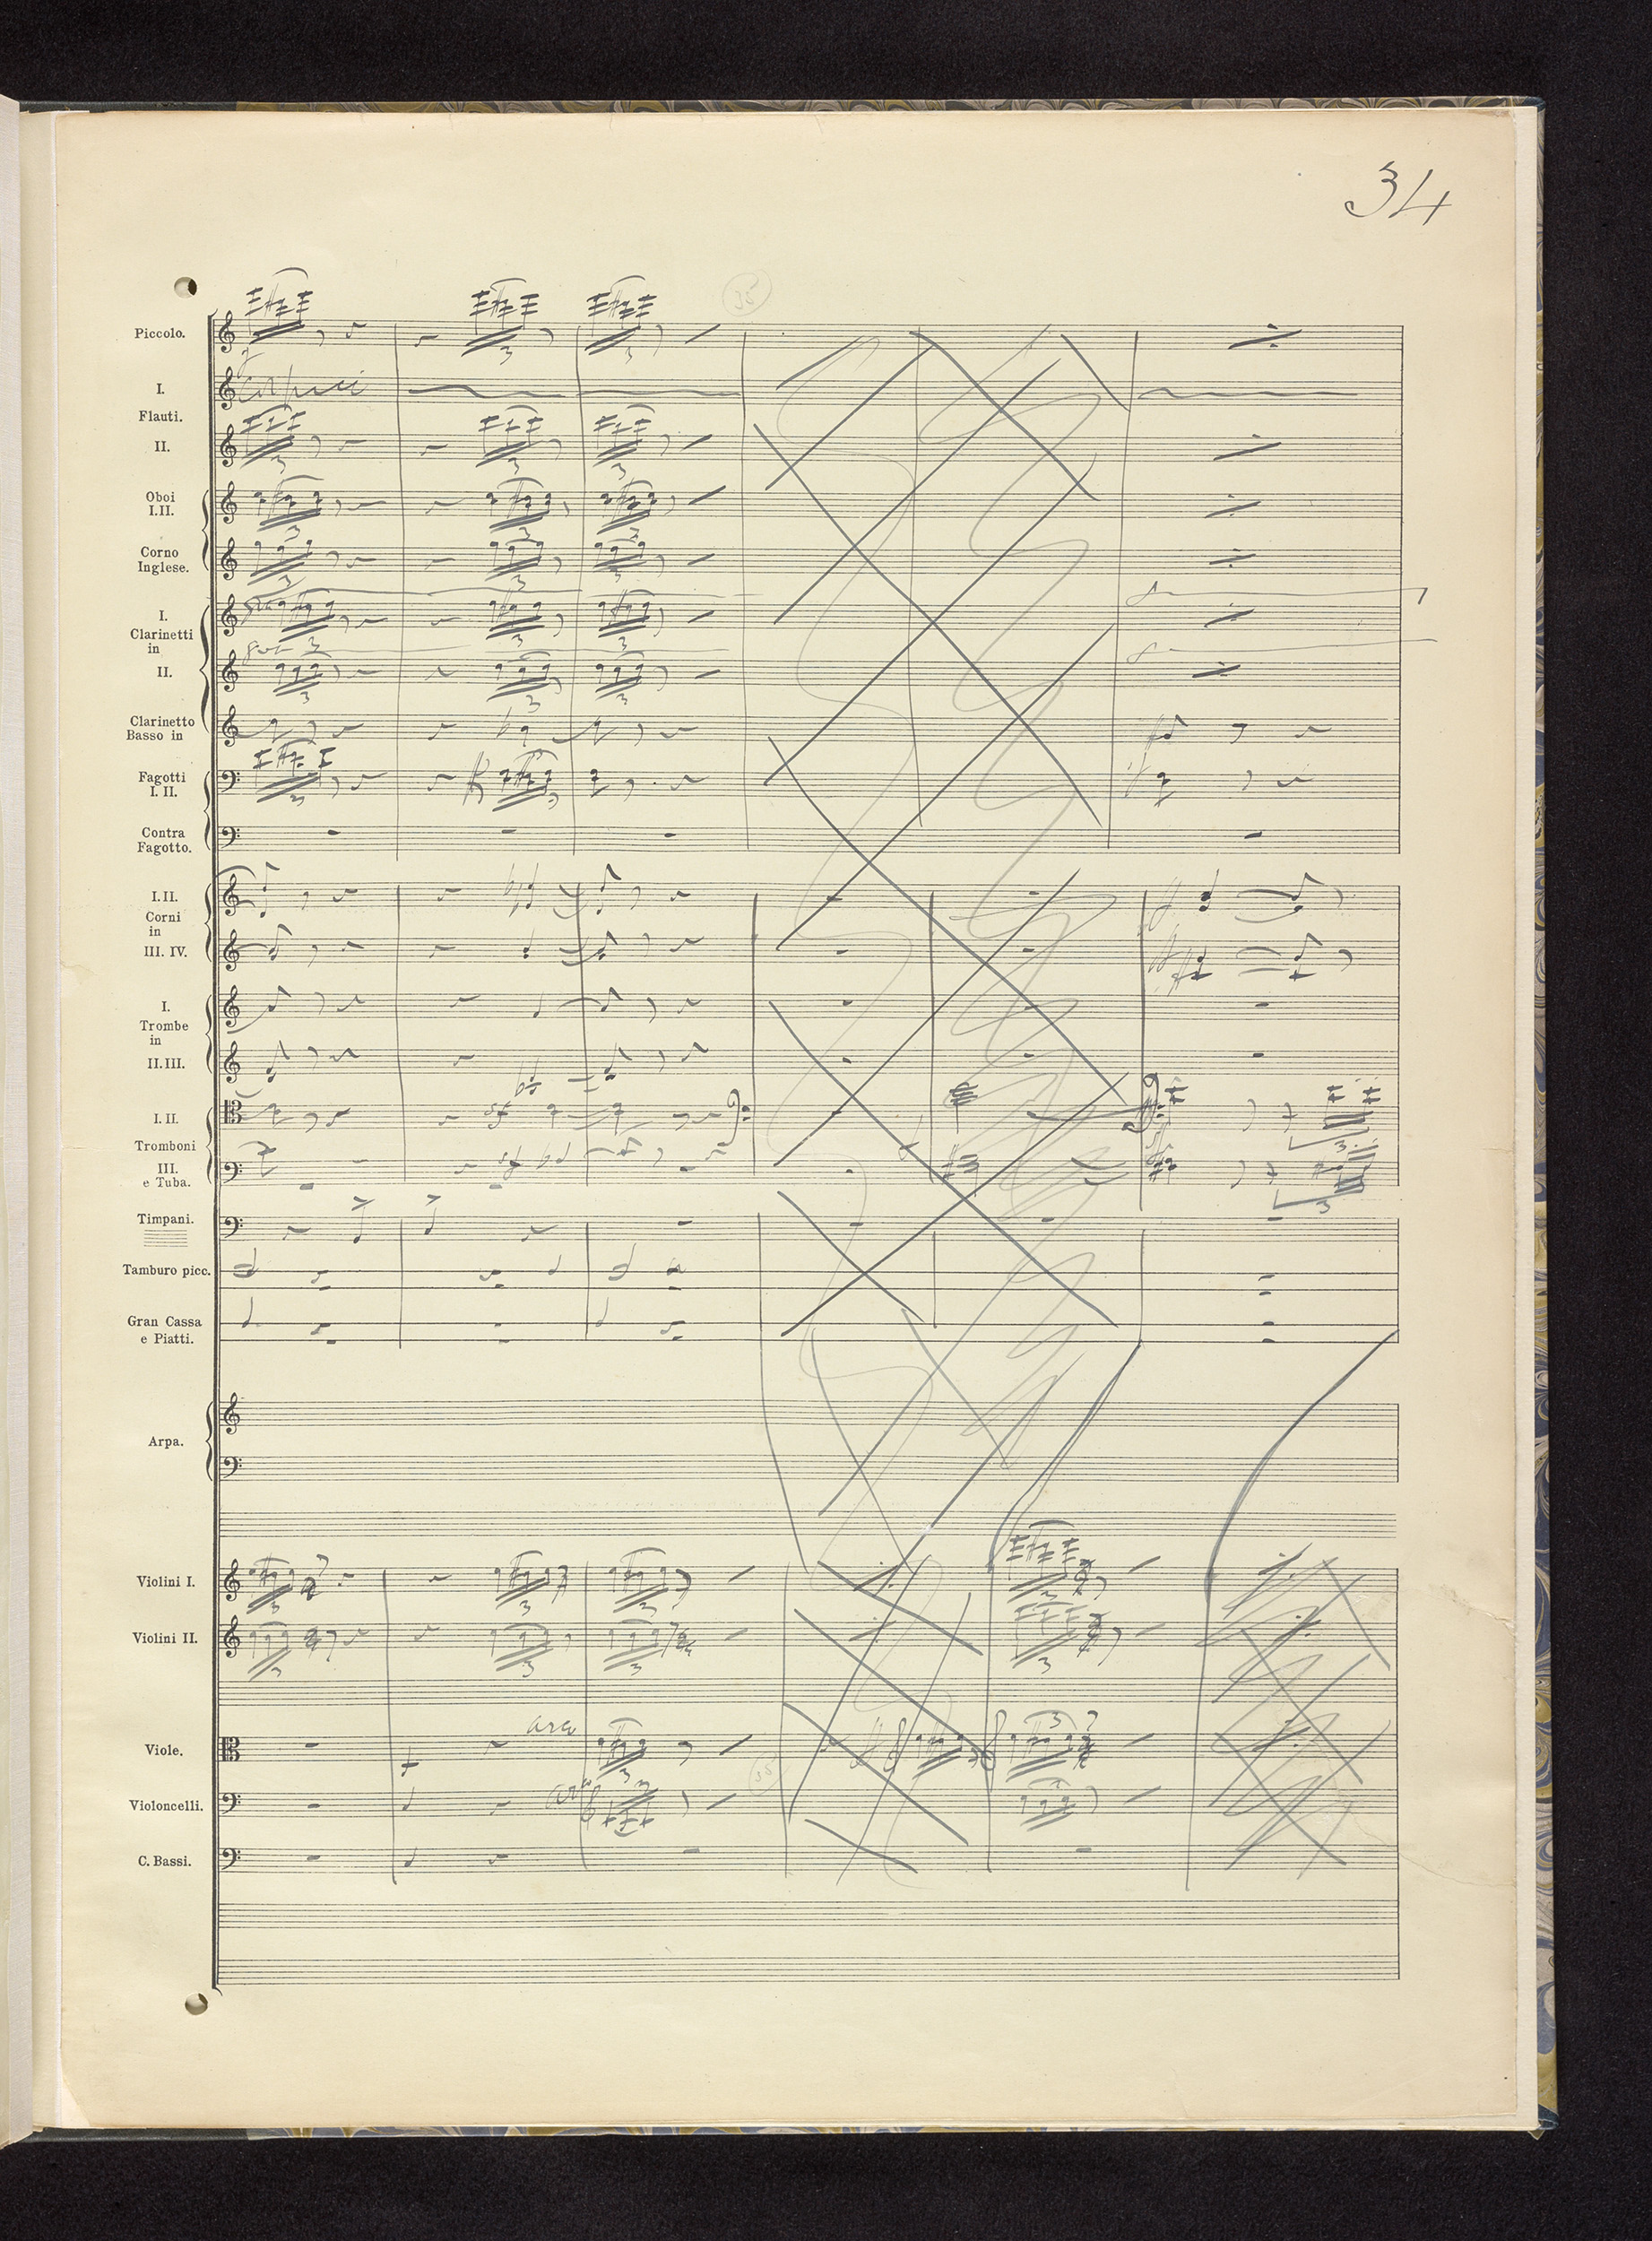 34
35
Piccolo.
I.
Flauti.
II.
Oboi
I.II.
Corno
Inglese.
I.
Clarinetti
in
II.
Clarinetto
Basso in
Fagotti
I. II.
Contra
Fagotto.
I.II.
Corni
in
III. IV.
I.
Trombe
in
II.III.
I.II.
Tromboni
III.
e Tuba.
Timpani.
Tamburo picc.
Gran Cassa
e Piatti.
Arpa.
Violini I.
Violini II.
arco
Viole.
35
arco
Violoncelli.
C. Bassi.